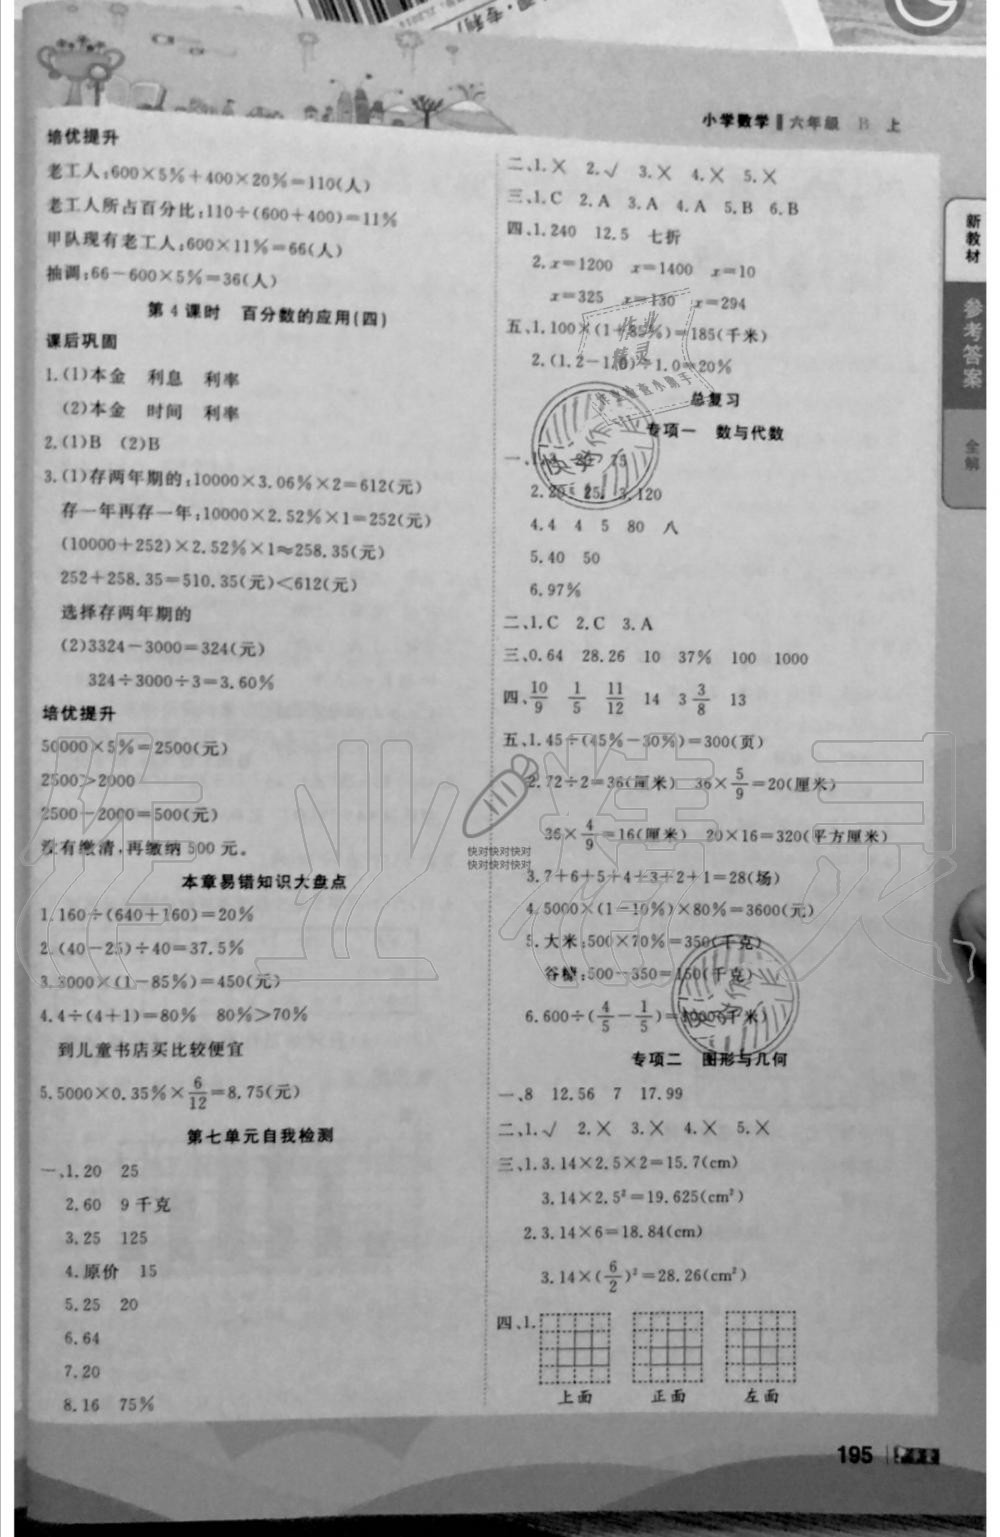 小学数学 六年级 B 上
培优提升
老工人:600×5%+400×20%=110(人)
老工人所占百分比:110÷(600+400)=11%
甲队现有老工人:600×11%=66(人)
抽调:66-600×5%=36(人)
第4课时 百分数的应用(四)
课后巩固
1.(1)本金 利息 利率
(2)本金 时间 利率
2.(1)B (2)B
3.(1)存两年期的:10000×3.06%×2=612(元)
存一年再存一年:10000×2.52%×1=252(元)
(10000+252)×2.52%×1≈258.35(元)
252+258.35=510.35(元)<612(元)
选择存两年期的
(2)3324-3000=324(元)
324÷3000÷3=3.60%
培优提升
50000×5%=2500(元)
2500>2000
2500-2000=500(元)
没有缴清,再缴纳500元。
本章易错知识大盘点
1.160÷(640+160)=20%
2.(40-25)÷40=37.5%
3.3000×(1-85%)=450(元)
4.4÷(4+1)=80% 80%>70%
到儿童书店买比较便宜
5.5000×0.35%×6/12=8.75(元)
第七单元自我检测
一、1.20 25
2.60 9千克
3.25 125
4.原价 15
5.25 20
6.64
7.20
8.16 75%
二、1.× 2.√ 3.× 4.× 5.×
三、1.C 2.A 3.A 4.A 5.B 6.B
四、1.240 12.5 七折
2.x=1200 x=1400 x=10
x=325 x=130 x=294
五、1.100×(1+85%)=185(千米)
2.(1.2-1.0)÷1.0=20%
总复习
专项一 数与代数
一、1. 25
2.20 25 3.120
4.4 4 5 80 八
5.40 50
6.97%
二、1.C 2.C 3.A
三、0.64 28.26 10 37% 100 1000
四、10/9 1/5 11/12 14 3 3/8 13
五、1.45÷(45%-30%)=300(页)
2.72÷2=36(厘米) 36×5/9=20(厘米)
36×4/9=16(厘米) 20×16=320(平方厘米)
3.7+6+5+4+3+2+1=28(场)
4.5000×(1-10%)×80%=3600(元)
5.大米:500×70%=350(千克)
谷糠:500-350=150(千克)
6.600÷(4/5-1/5)=1000(千米)
专项二 图形与几何
一、8 12.56 7 17.99
二、1.√ 2.× 3.× 4.× 5.×
三、1.3.14×2.5×2=15.7(cm)
3.14×2.5²=19.625(cm²)
2.3.14×6=18.84(cm)
3.14×(6/2)²=28.26(cm²)
四、1.
上面 正面 左面
新教材
参考答案
全解
195
作业精灵
快对快对快对
快对快对快对